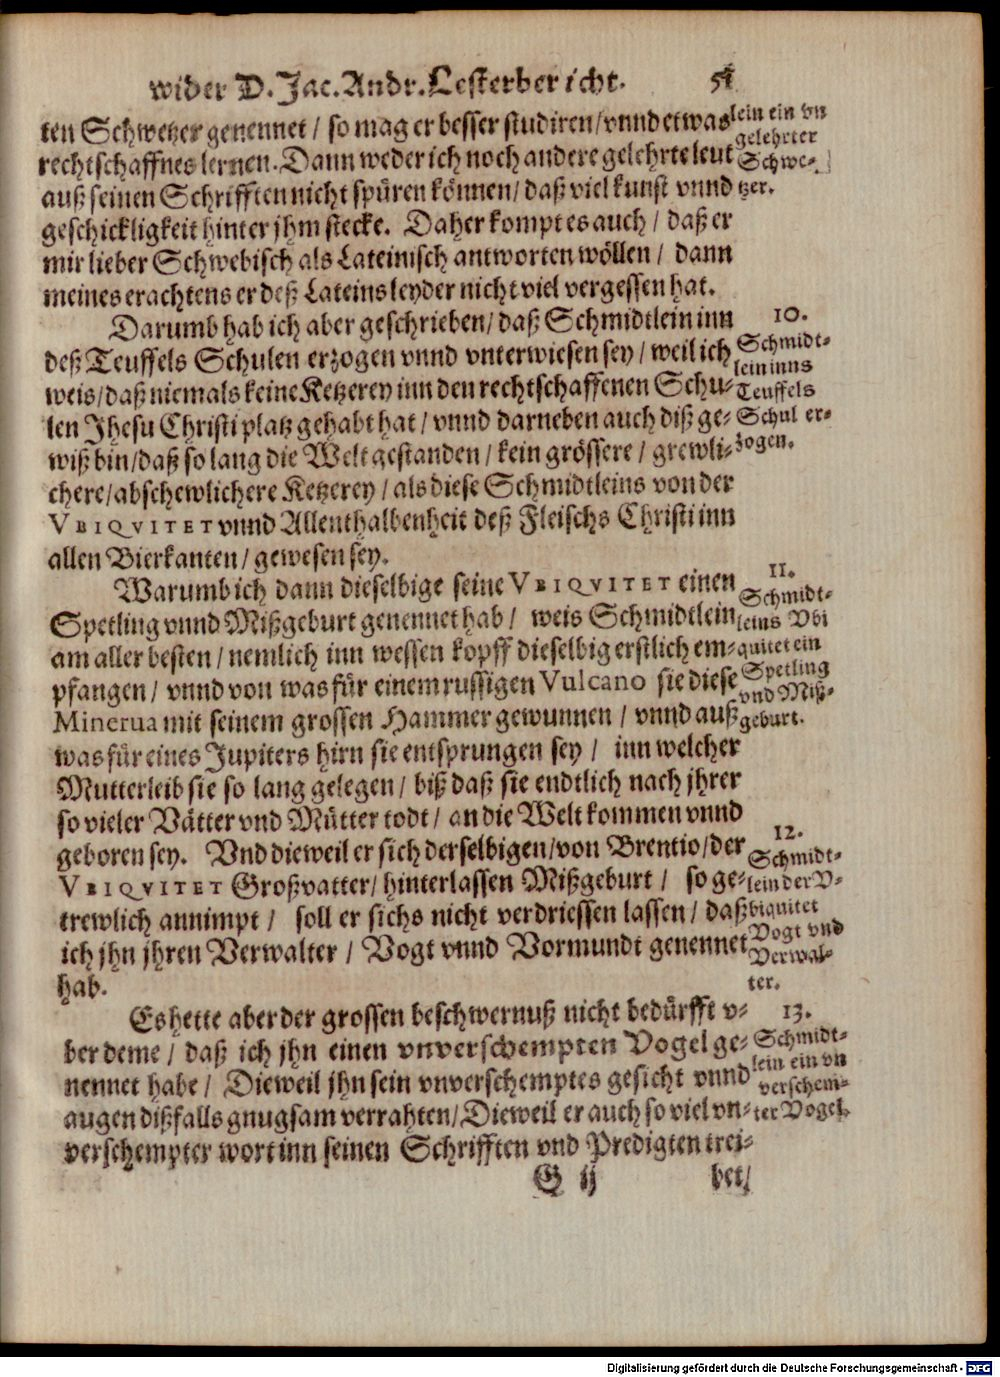 wider D. Jac. Andr. Lesterbericht. 51
ten Schwetzer genennet / so mag er besser studiren / vnnd etwas
rechtschaffnes lernen. Dann weder ich noch andere gelehrte leut
auß seinen Schrifften nicht spüren können / daß viel kunst vnnd
geschickligkeit hinter jhm stecke. Daher kompt es auch / daß er
mir lieber Schwebisch als Lateinisch antworten wöllen / dann
meines erachtens er deß Lateins leyder nicht viel vergessen hat.
lein ein vn
gelehrter
Schwe-
tzer.
Darumb hab ich aber geschrieben / daß Schmidtlein inn
deß Teuffels Schulen erzogen vnnd vnterwiesen sey / weil ich
weis / daß niemals keine Ketzerey inn den rechtschaffenen Schu-
len Jhesu Christi platz gehabt hat / vnnd darneben auch diß ge-
wiß bin / daß so lang die Welt gestanden / kein grössere / grewli-
chere / abschewlichere Ketzerey / als diese Schmidtleins von der
VBIQVITET vnnd Allenthalbenheit deß Fleischs Christi inn
allen Bierkanten / gewesen sey.
10.
Schmidt-
lein inns
Teuffels
Schul er-
zogen.
Warumb ich dann dieselbige seine VBIQVITET einen
Spetling vnnd Mißgeburt genennet hab / weis Schmidtlein
am aller besten / nemlich inn wessen kopff dieselbig erstlich em-
pfangen / vnnd von was für einem russigen Vulcano sie diese
Minerua mit seinem grossen Hammer gewunnen / vnnd auß
was für eines Jupiters hirn sie entsprungen sey / inn welcher
Mutterleib sie so lang gelegen / biß daß sie endtlich nach jhrer
so vieler Vätter vnd Mütter todt / an die Welt kommen vnnd
geboren sey. Vnd dieweil er sich derselbigen / von Brentio / der
VBIQVITET Großvatter / hinterlassen Mißgeburt / so ge-
trewlich annimpt / soll er sichs nicht verdriessen lassen / daß
ich jhn jhren Verwalter / Vogt vnnd Vormundt genennet
hab.
11.
Schmidt-
leins Vbi
quitet ein
Spetling
vnd Miß-
geburt.
12.
Schmidt-
lein der V-
biquitet
Vogt vnd
Verwal-
ter.
Es hette aber der grossen beschwernuß nicht bedürfft v-
ber deme / daß ich jhn einen vnverschempten Vogel ge-
nennet habe / Dieweil jhn sein vnverschemptes gesicht vnnd
augen dißfalls gnugsam verrahten / Dieweil er auch so viel vn-
verschempter wort inn seinen Schrifften vnd Predigten trei-
13.
Schmidt-
lein ein vn
verschem-
ter Vogel.
G ij bet /
Digitalisierung gefördert durch die Deutsche Forschungsgemeinschaft - DFG